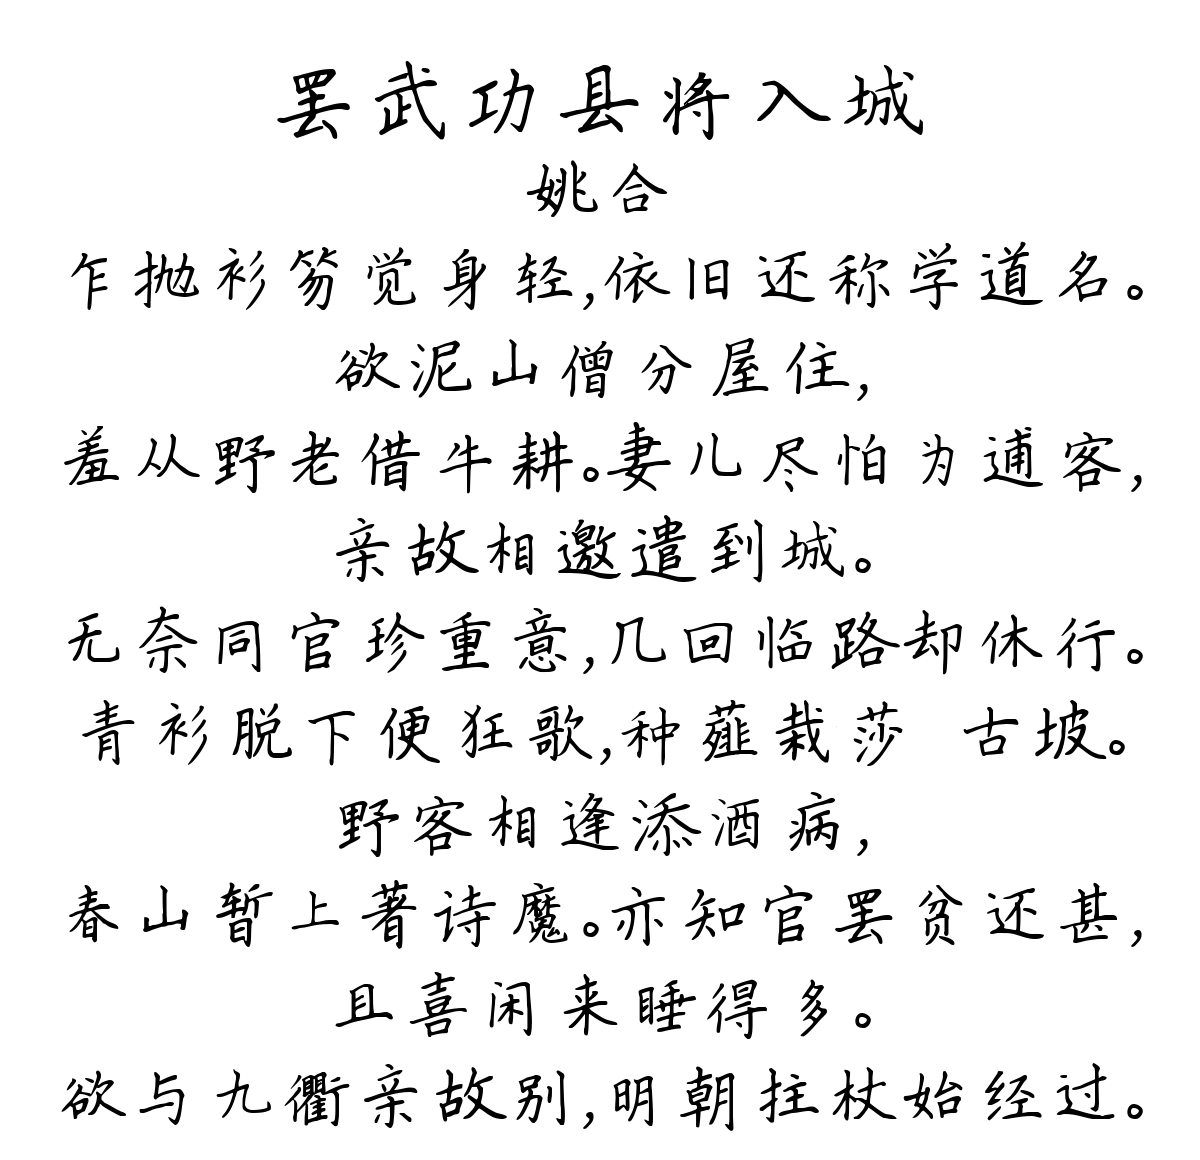 罢武功县将入城
姚合
乍抛衫笏觉身轻,依旧还称学道名。
欲泥山僧分屋住,
羞从野老借牛耕。妻儿尽怕为逋客,
亲故相邀遣到城。
无奈同官珍重意,几回临路却休行。
青衫脱下便狂歌,种薤栽莎 古坡。
野客相逢添酒病,
春山暂上著诗魔。亦知官罢贫还甚,
且喜闲来睡得多。
欲与九衢亲故别,明朝拄杖始经过。